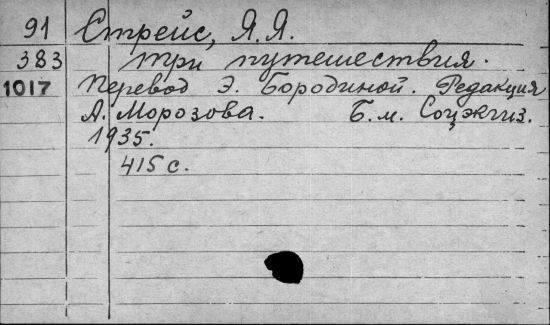 91 Стрейс, Я.Я.
383 Три путешествия.
1017 Перевод Э. Бородиной. Редакция
А. Морозова. Б.м. Соцэкгиз.
1935.
415 с.